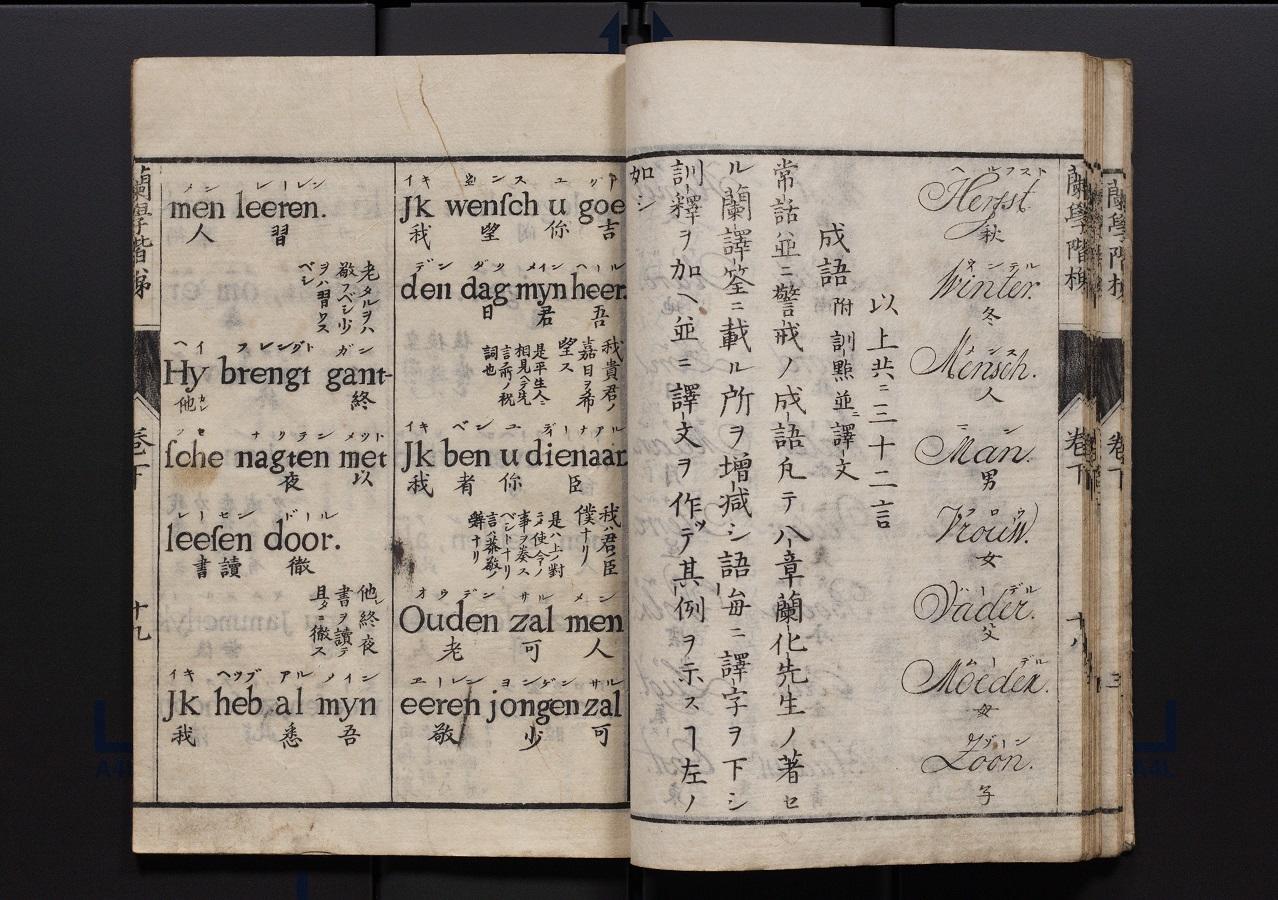 蘭學階梯
卷下
十八
ヘルフスト
Herfst
秋
ウヰンテル
Winter.
冬
メンス
Mensch.
人
マン
Man.
男
フロウ
Vrouw.
女
ハードル
Vader.
父
ムードル
Moeder.
母
ソーン
Zoon.
子
以上共ニ三十二言
成語附訓點並ニ譯文
常話並ニ警戒ノ成語凡テ八章蘭化先生ノ著セ
ル蘭譯筌ニ載ル所ヲ增減シ語每ニ譯字ヲ下シ
訓釋ヲ加ヘ並ニ譯文ヲ作ッテ其例ヲ示スヿ左ノ
如シ
Jk wenſch u goe
我 望 你 吉
デン ダッ メイン ヘール
den dag myn heer.
日 君 吾
我貴君ノ
嘉日ヲ希
望ス
是平生人ニ
相見ヘテ先
言所ノ祝
詞也
イキ ベン ユ ディーナアル
Jk ben u dienaar.
我 者 你 臣
我ハ君ノ臣
僕ナリ
是ハ上ノ對
事ヲ奏ス
ベントナリ
言ハ恭敬ノ
辭ナリ
オウデン サル メン
Ouden zal men
老 可 人
エーレン ヨンゲン サル
eeren jongen zal
敬 少 可
メン レーレン
men leeren.
人 習
老タルヲハ
敬フベシ少
ヲハ習ワス
ベシ
ヘイ フレングト ガン
Hy brengt gant-
他 終
セ ナクテン メット
ſche nagten met
夜 以
レーセン ドール
leeſen door.
書讀 徹
他終夜
書ヲ讀テ
且ニ徹ス
イキ ヘッブ アル メイン
Jk heb al myn
我 悉 吾
蘭學階梯
卷下
十九